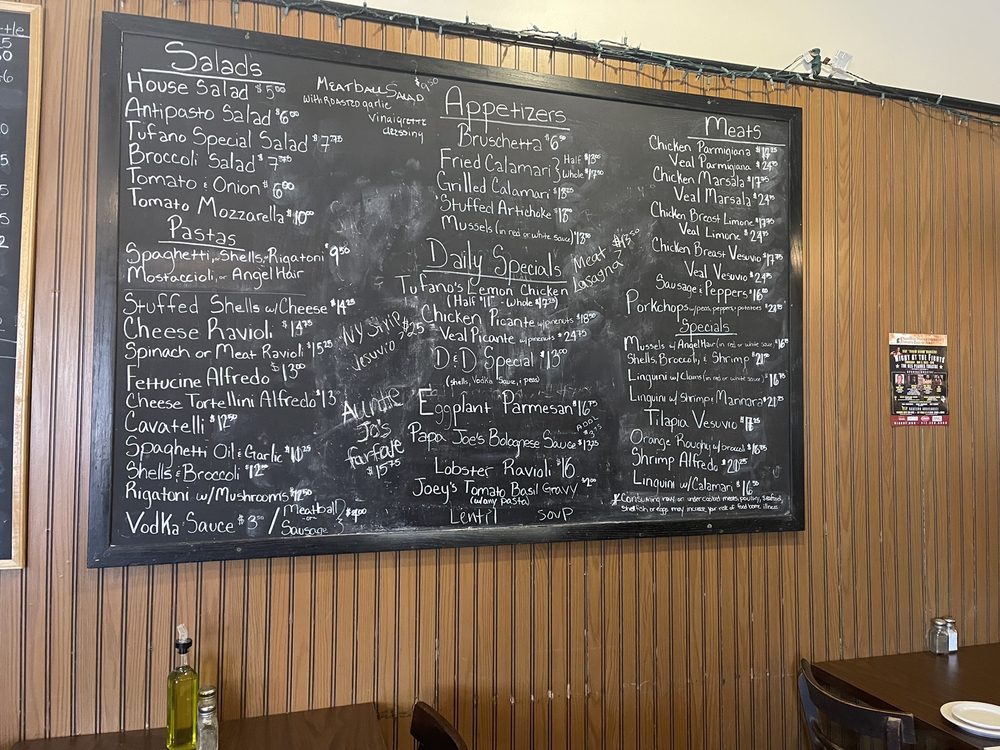 Salads
House Salad $5.00
Antipasto Salad $6.00
Tufano Special Salad $7.75
Broccoli Salad $7.75
Tomato & Onion $6.00
Tomato Mozzarella $10.00
Meatball Salad $9.50
with Roasted garlic
vinaigrette
dressing
Pastas
Spaghetti, or Shells, or Rigatoni $9.50
Mostaccioli, or Angel Hair
Stuffed Shells w/Cheese $14.25
Cheese Ravioli $14.75
Spinach or Meat Ravioli $15.25
Fettucine Alfredo $13.00
Cheese Tortellini Alfredo $13
Cavatelli $12.50
Spaghetti Oil & Garlic
Shells & Broccoli
Rigatoni w/Mushrooms
Vodka Sauce / Meatball
or
Sausage
NY Strip $25
Vesuvio
Auntie
Jo's
farfale
$15.75
Appetizers
Bruschetta $6.50
Fried Calamari } Half $13.00
Whole
Grilled Calamari
Stuffed Artichoke $18
Mussels (in red or white sauce) $13
Daily Specials
Meat
Lasagna
Tufano's Lemon Chicken
(Half $11 - Whole $17.25)
Chicken Picante w/pinenuts $18.50
Veal Picante w/pinenuts $24.75
D&D Special $13.00
(shells, Vodka Sauce, & peas)
Eggplant Parmesan $16.75
Papa Joe's Bolognese Sauce $13.25
Lobster Ravioli $16.
Joey's Tomato Basil Gravy
(w/any pasta)
Lentil Soup
Meats
Chicken Parmigiana
Veal Parmigiana $24.75
Chicken Marsala $17.75
Veal Marsala $24.75
Chicken Breast Limone $17.75
Veal Limone $24.75
Chicken Breast Vesuvio $17.75
Veal Vesuvio $24.75
Sausage & Peppers $16.00
Porkchops w/peas, peppers, & potatoes
Specials
Mussels w/Angel Hair (in red or white sauce)
Shells, Broccoli, & Shrimp
Linguini w/Clams (in red or white sauce) $16.75
Linguini w/Shrimp & Mannara $21.75
Tilapia Vesuvio
Orange Roughy w/broccoli
Shrimp Alfredo
Linguini w/Calamari
* Consuming raw or undercooked meats, poultry, seafood,
shellfish or eggs may increase your risk of food borne illness.
NIGHT AT THE FIGHTS